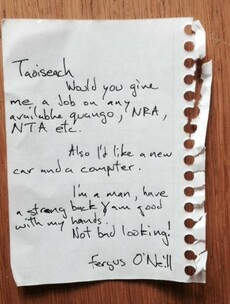 Taoiseach
Would you give
me a Job on any
available quango, NRA,
NTA etc.
Also I'd like a new
car and a computer.
I'm a man, have
a strong back & am good
with my hands.
Not bad looking!
Fergus O'Neill